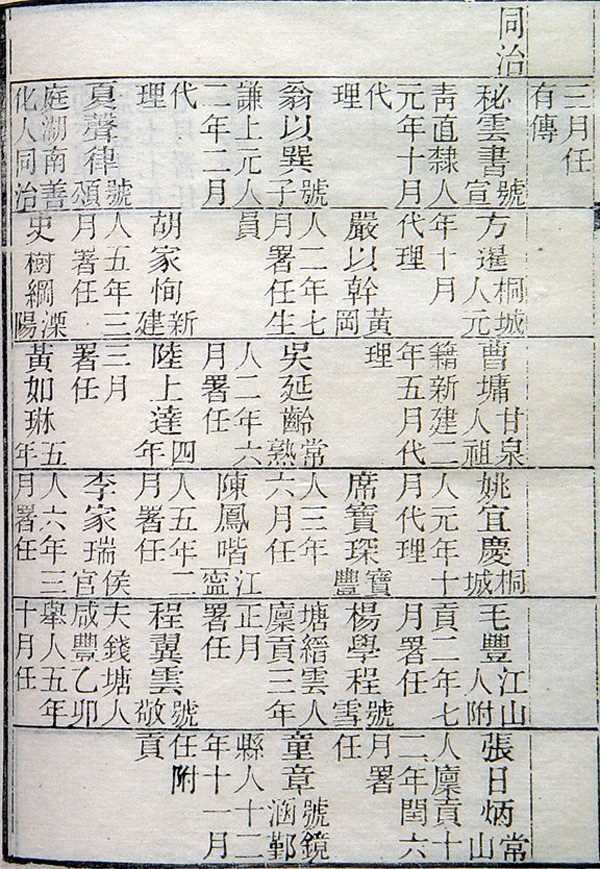 同治
三月任
有傳
秘雲書號宣
青直隸人
元年十月
代
理
翁以巽號子
謙上元人
二年二月
代
理
夏聲律號頌
庭湖南善
化人同治
方暹桐城人元
年十月
代理
嚴以幹黃岡
人二年七
月署任生
員
胡家恂新建
人五年三
月署任
史樹綱溧陽
曹墉甘泉人祖
籍新建二
年五月代
理
吳延齡常熟
人二年六
月署任
陸上達四年
三月
署任
黃如琳五年
姚宜慶桐城
人元年十
月代理
席寶琛寶豐
人三年
六月任
陳鳳喈江寍
人五年二
月署任
李家瑞侯官
人六年三
月署任
毛豐江山人附
貢二年七
月署任
楊學程號雪
塘縉雲人
廩貢三年
正月
署任
程翼雲號敬
夫錢塘人
咸豐乙卯
舉人五年
十月任
張日炳常山
人廩貢十
二年閏六
月署
任
童章號鏡涵鄞
縣人十二
年十一月
任附
貢